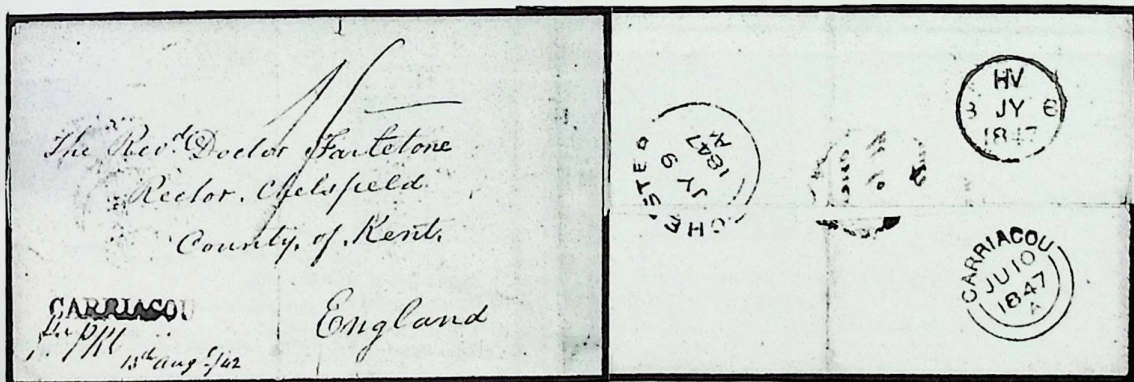 1/-
The Revd. Doctor Fartetone
Rector. Chelsfield
County, of Kent,
England
CARRIACOU
13th Augt/42
CHESTER
JY 9
1847
A
HV
8 JY 8
1847
CARRIACOU
JU 10
1847
A